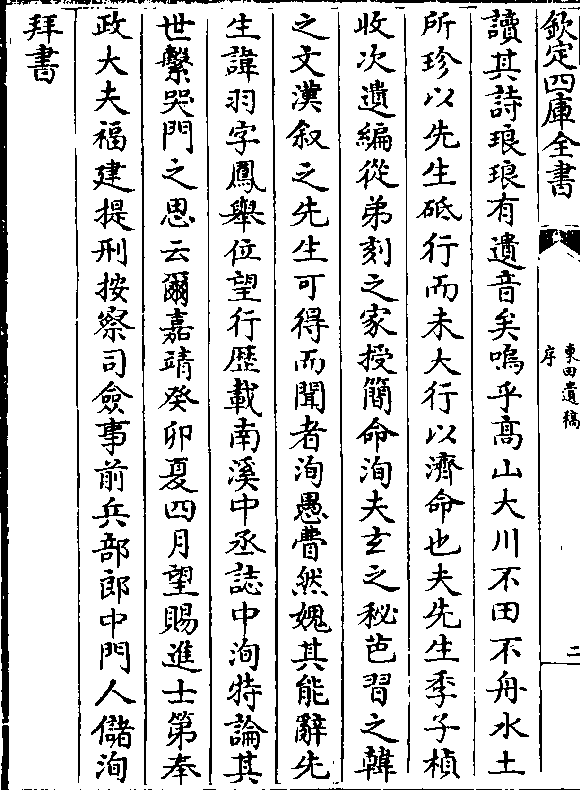 欽定四庫全書
東田遺稿
序
二
讀其詩琅琅有遺音矣嗚乎髙山大川不田不舟水土
所珍以先生砥行而未大行以濟命也夫先生季子楨
收次遺編從弟刻之家授簡命洵夫玄之秘芭習之韓
之文漢叙之先生可得而聞者洵愚瞢然媿其能辭先
生諱羽字鳳舉位望行歴載南溪中丞誌中洵特論其
世繫哭門之思云爾嘉靖癸卯夏四月望賜進士第奉
政大夫福建提刑按察司僉事前兵部郎中門人儲洵
拜書